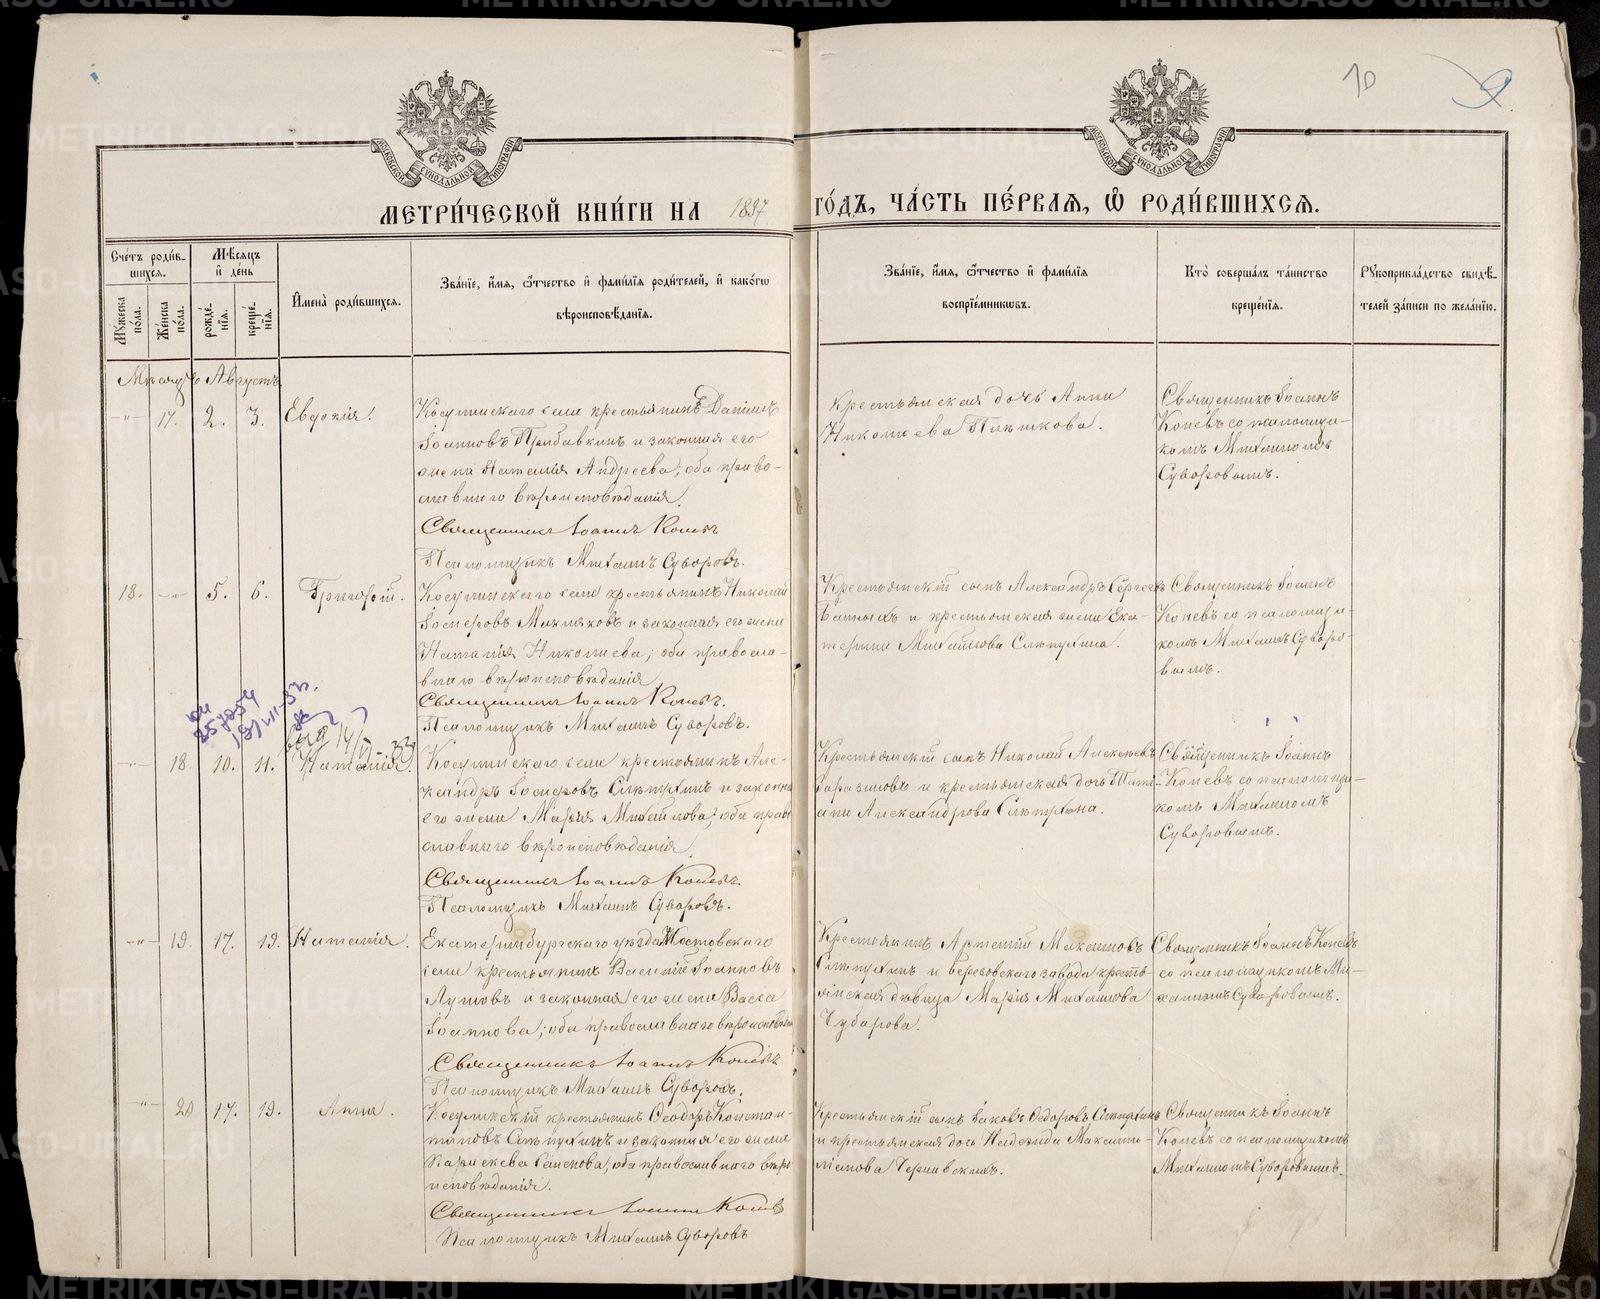 МЕТРИ́ЧЕСКОЙ КНИ́ГИ НА 1897 ГО́ДЪ, ЧА́СТЬ ПЕ́РВАЯ, Ѡ РОДИ́ВШИХСЯ.
Сче́тъ роди́вшихся.
Мꙋ́жеска по́ла.
Же́нска по́ла.
Мѣ́сяцъ и де́нь
рожде́нїя.
креще́нїя.
Имена̀ роди́вшихся.
Зва́нїе, и́мя, ѻ́тчество и фами́лїя роди́телей, и како́гѡ
вѣроисповѣ́данїя.
Зва́нїе, и́мя, ѻ́тчество и фами́лїя
воспрїе́мникѡвъ.
Кто̀ соверша́лъ та́инство
креще́нїя.
Рꙋкоприкла́дство свидѣ́-
телей за́писи по жела́нїю.
Мѣсяцъ Августъ
17. 2. 3. Евдокія.
Косулинскаго села крестьянинъ Данiилъ
Іоанновъ Прибавкинъ и законная его
жена Наталія Андреева, оба право-
славнаго вѣроисповѣданія.
Священникъ Іоаннъ Коневъ
Псаломщикъ Михаилъ Суворовъ.
Крестьянская дочь Анна
Николаева
Священникъ Іоаннъ
Коневъ со псаломщи-
комъ Михаиломъ
Суворовымъ.
18. 5. 6. Григорій.
Косулинскаго села крестьянинъ Николай
и законная его жена
Наталія Николаева; оба правосла-
внаго вѣроисповѣданія
Священникъ Іоаннъ Коневъ.
Псаломщикъ Михаилъ Суворовъ.
Крестьянскій сынъ Александръ Сергѣевъ
и крестьянская жена Ека-
терина Михайлова
Священникъ Іоаннъ
Коневъ со псаломщи-
комъ Михаиломъ Суворо-
вымъ.
18. 10. 11. Наталія.
Косулинскаго села крестьянинъ Але-
ксандръ и законная
его жена Марія Михайлова; оба право
славнаго вѣроисповѣданія.
Священникъ Іоаннъ Коневъ.
Псаломщикъ Михаилъ Суворовъ.
Крестьянскій сынъ Николай Алексѣевъ
и крестьянская дочь Тать-
яна Александрова
Священникъ Іоаннъ
Коневъ со псаломщи-
комъ Михаиломъ
Суворовымъ.
19. 17. 19. Наталія.
Екатеринбургскаго уѣзда
села крестьянинъ Василій Іоанновъ
и законная его жена Васса
Іоаннова; оба православнаго вѣроисповѣданія
Священникъ Іоаннъ Коневъ
Псаломщикъ Михаилъ Суворовъ.
Крестьянинъ Артемій Максимовъ
и Березовскаго завода кресть-
янская дѣвица Марія Михайлова
Чубарова.
Священникъ Іоаннъ Коневъ
со псаломщикомъ Ми-
хаиломъ Суворовымъ.
20 17. 19. Анна.
Косулинскій крестьянинъ Ѳеодоръ Констан-
тиновъ и законная его жена
Параскева Семенова; оба православнаго вѣро
исповѣданія.
Священникъ Іоаннъ Коневъ
Псаломщикъ Михаилъ Суворовъ
Крестьянскій сынъ Яковъ Ѳедоровъ
и крестьянская дочь Надежда Максими-
ліанова
Священникъ Іоаннъ
Коневъ со псаломщикомъ
Михаиломъ Суворовымъ.
10
METRIKI.GASO-URAL.RU